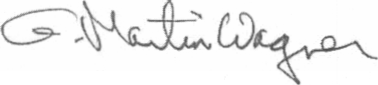 G. Martin Wagner